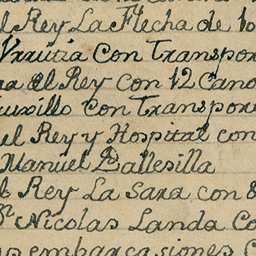 el Rey La Flecha de
Vrrutia Con Transpor
el Rey con 12 Cano
uxillo con Transpor
el Rey y Hospital con
Manuel Ballesilla
Rey La Sara con 8
Nicolas Landa Co
embarcasiones